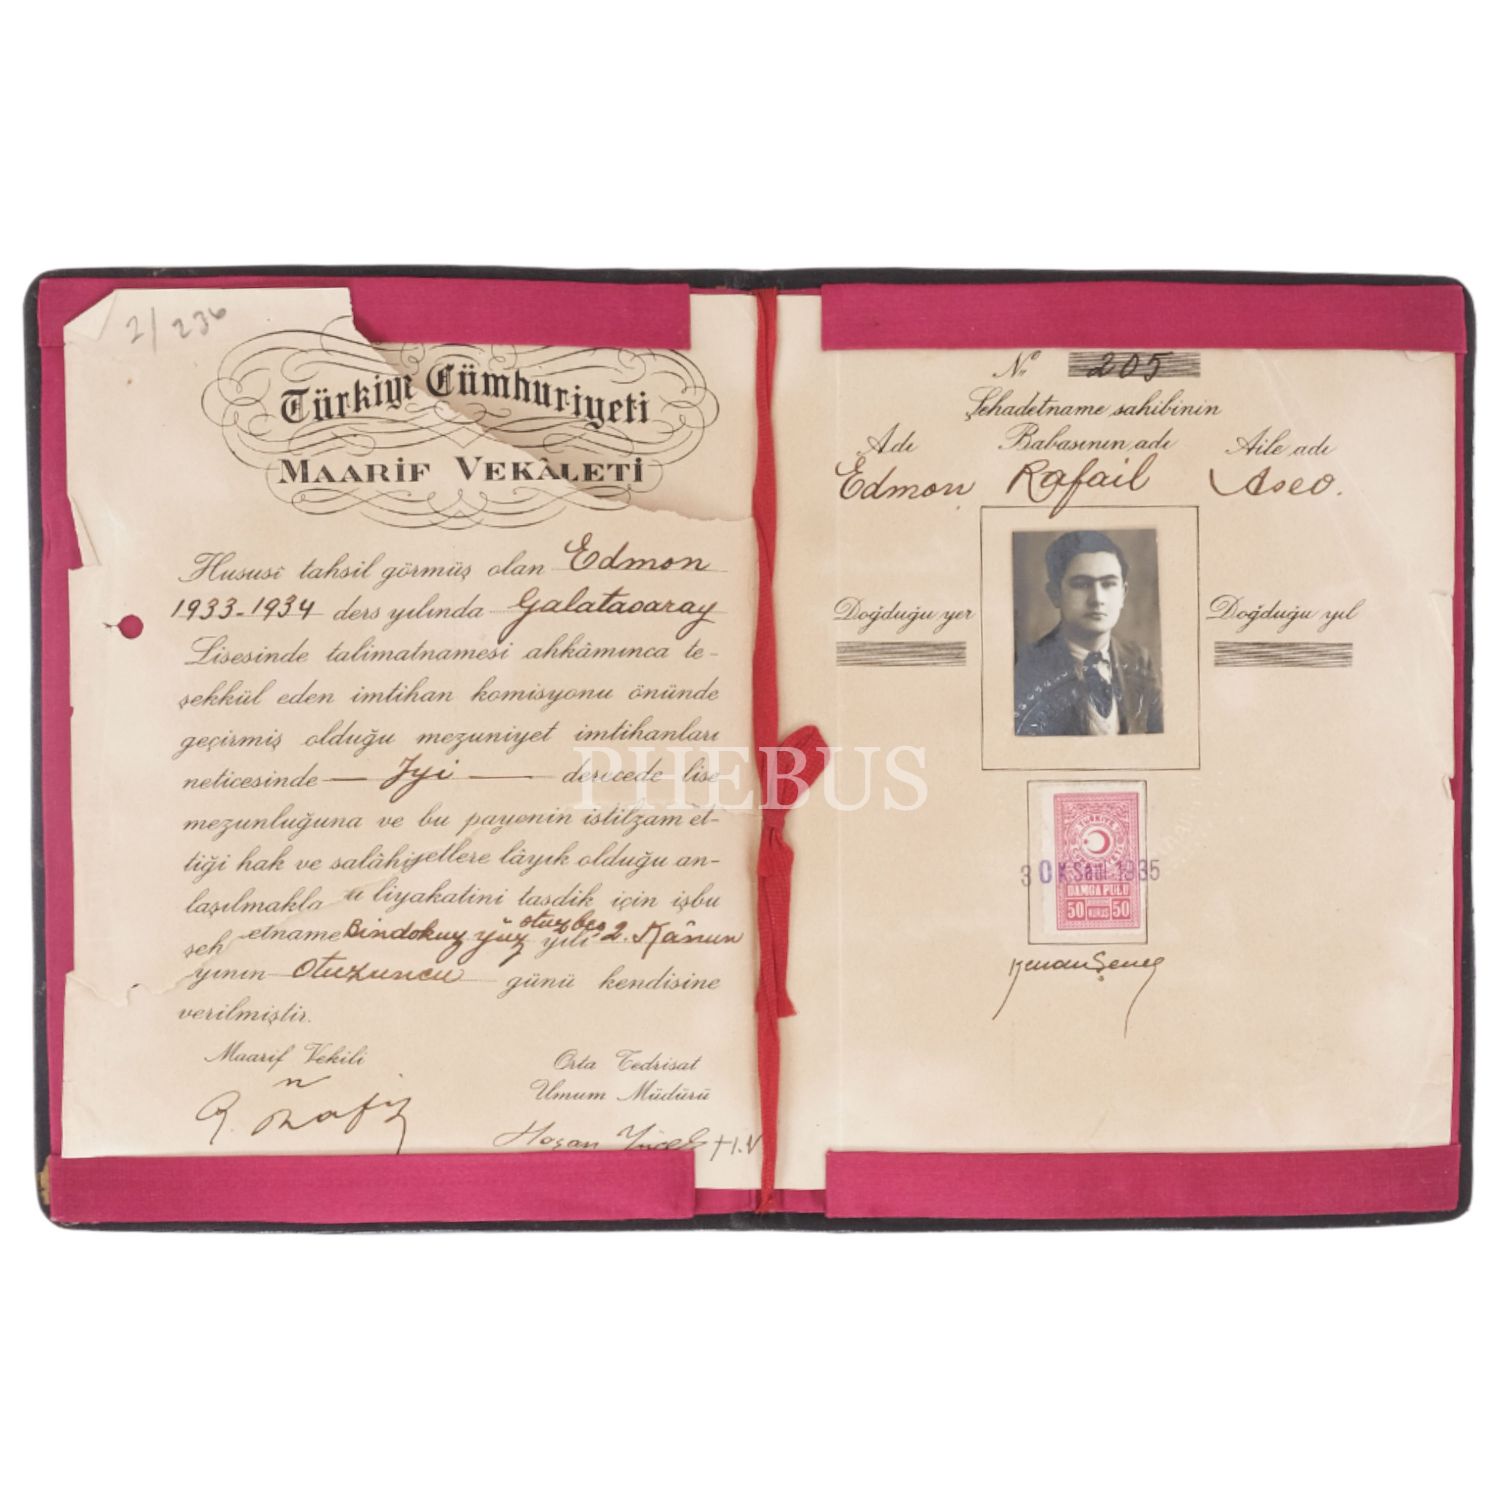 2/236
Türkiye Cümhuriyeti
MAARİF VEKÂLETİ
Hususî tahsil görmüş olan Edmon
1933-1934 ders yılında Galatasaray
Lisesinde talimatnamesi ahkâmınca te-
şekkül eden imtihan komisyonu önünde
geçirmiş olduğu mezuniyet imtihanları
neticesinde İyi derecede lise
mezunluğuna ve bu payenin istilzam et-
tiği hak ve salâhiyetlere lâyık olduğu an-
laşılmakla liyakatini tasdik için işbu
şeh etname Bindokuz yüz otuz beş yılı 2. Kânun
yının Otuzuncu günü kendisine
verilmiştir.
Maarif Vekili
Orta Tedrisat
Umum Müdürü
Hasan
No 205
Şehadetname sahibinin
Adı Babasının adı Aile adı
Edmon Rafail Aseo.
Doğduğu yer
Doğduğu yıl
TÜRKİYE
30 K Sani 1935
DAMGA PULU
50 KURUŞ 50
PHEBUS